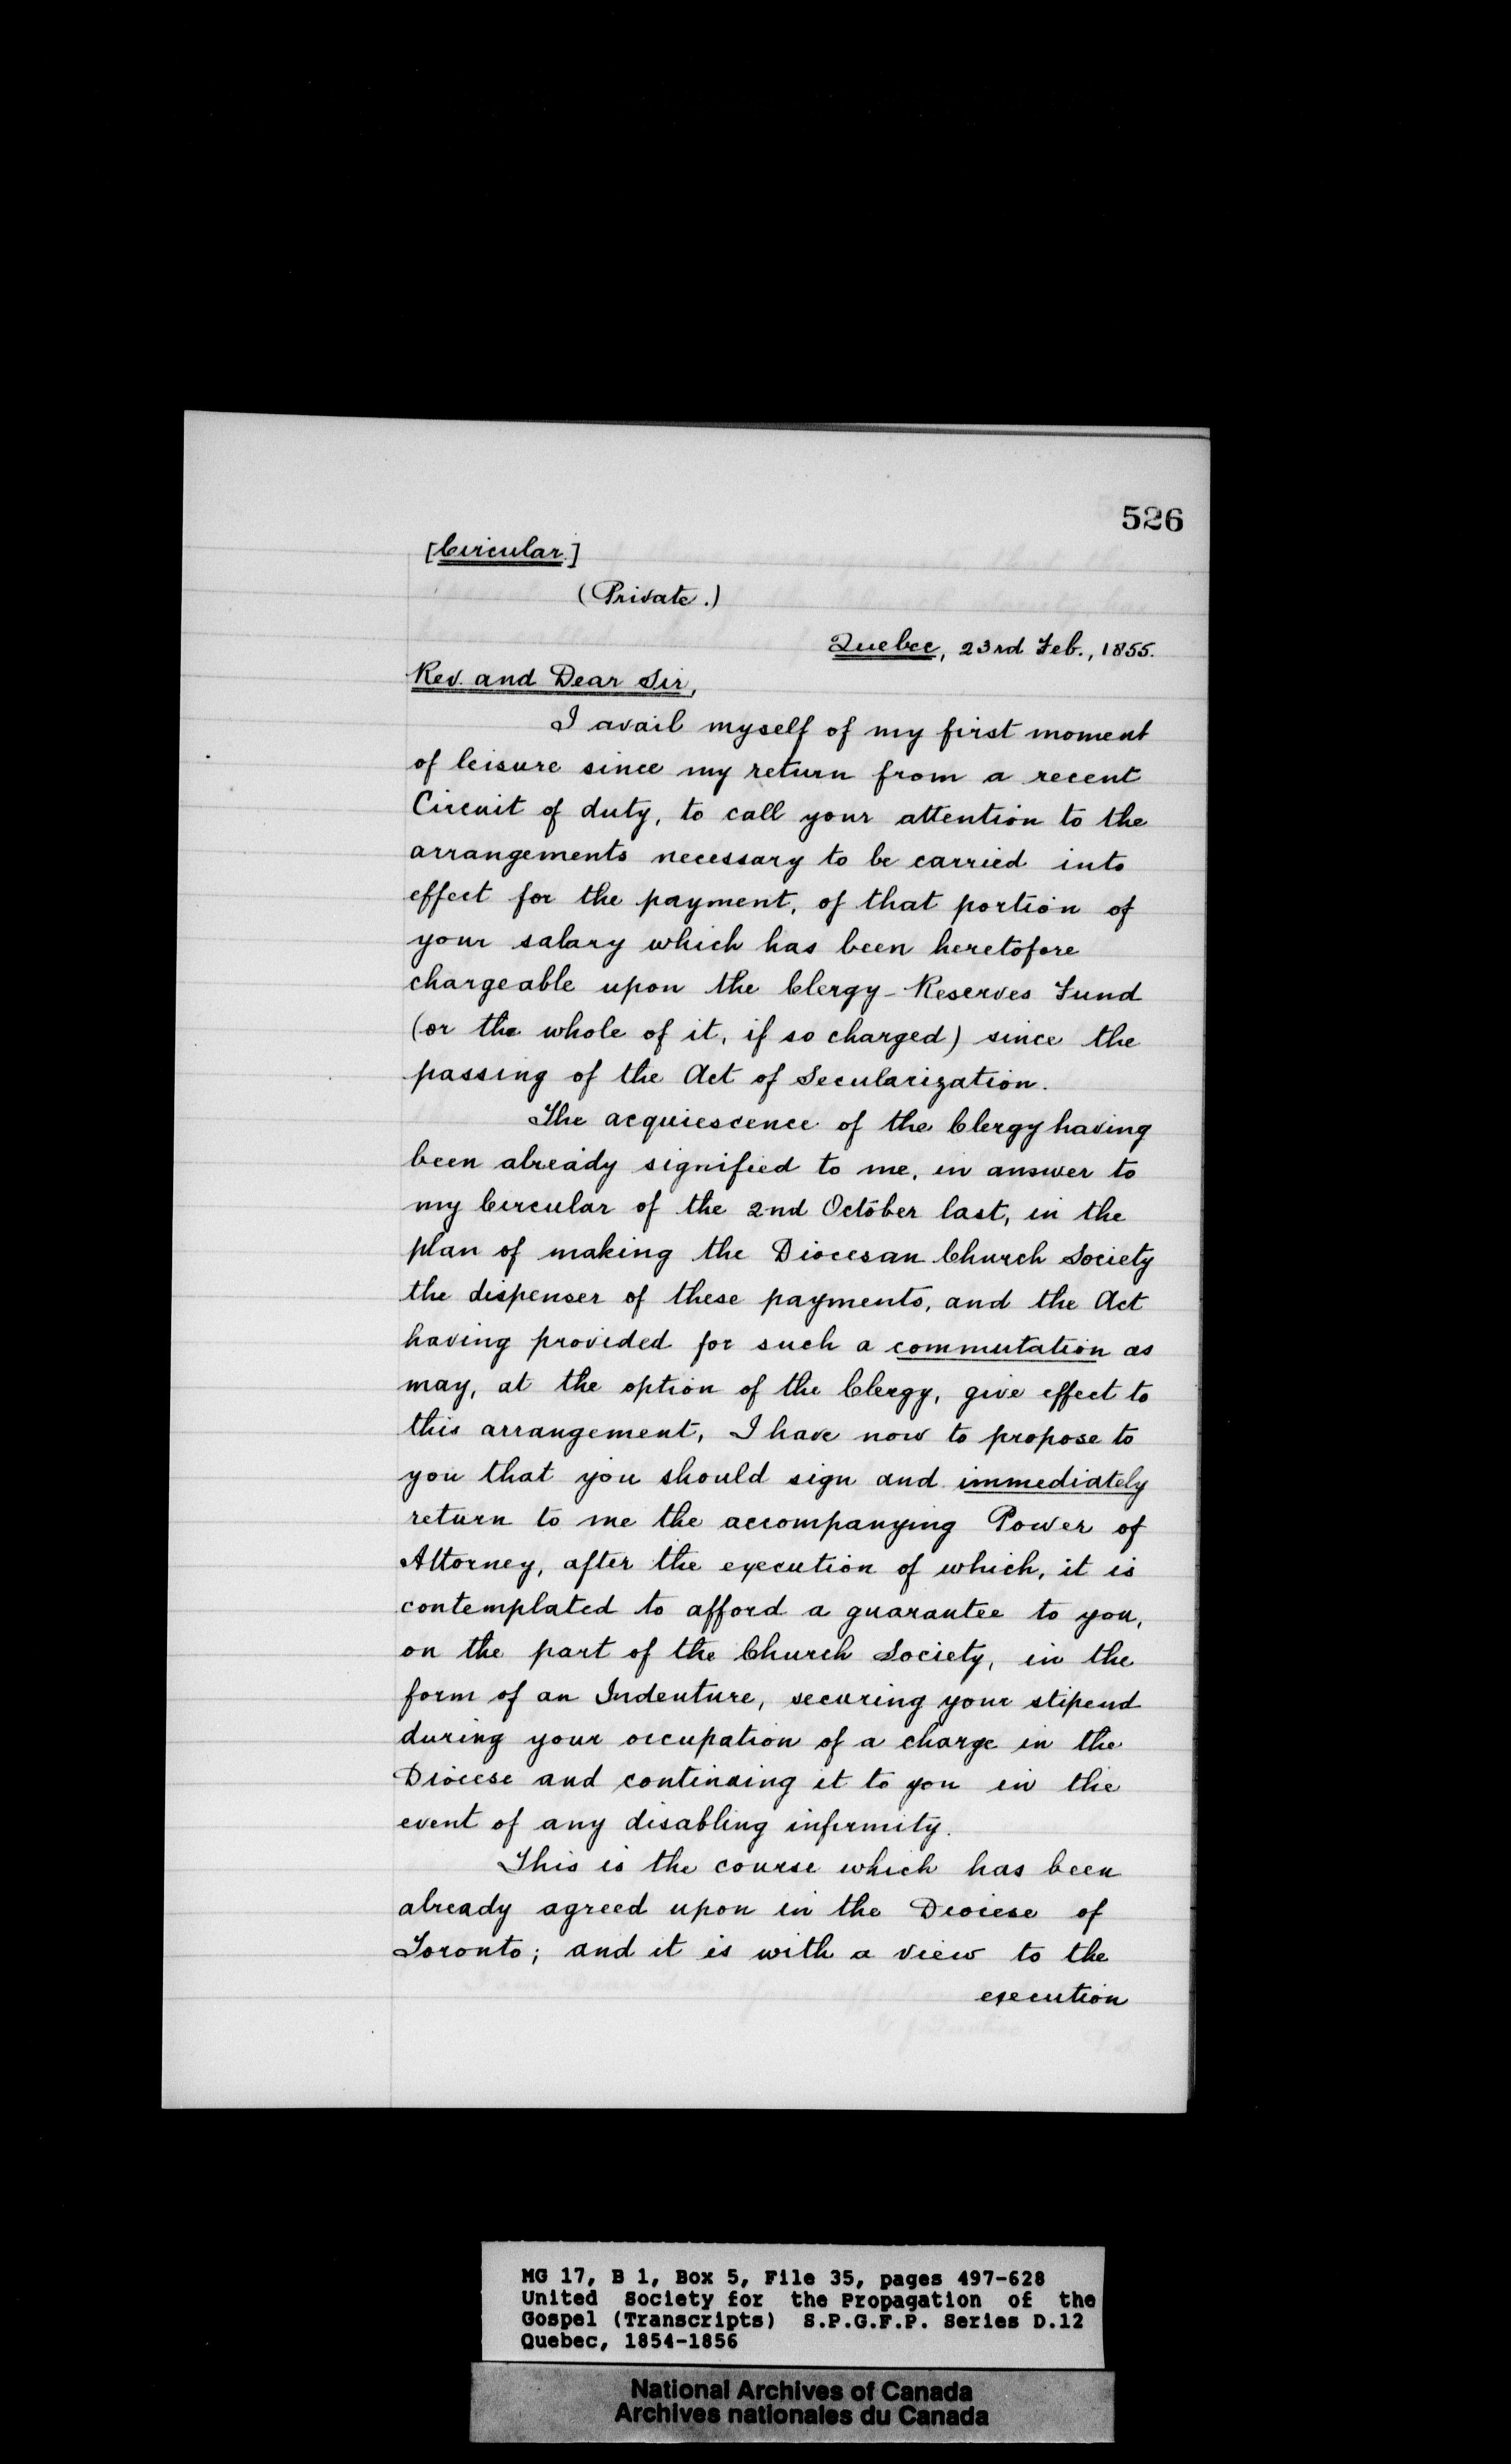 526
[Circular.]
(Private.)
Quebec, 23rd Feb., 1855.
Rev. and Dear Sir,
I avail myself of my first moment
of leisure since my return from a recent
Circuit of duty, to call your attention to the
arrangements necessary to be carried into
effect for the payment, of that portion of
your salary which has been heretofore
chargeable upon the Clergy-Reserves Fund
(or the whole of it, if so charged) since the
passing of the Act of Secularization.
The acquiescence of the Clergy having
been already signified to me, in answer to
my Circular of the 2nd October last, in the
plan of making the Diocesan Church Society
the dispenser of these payments, and the Act
having provided for such a commutation as
may, at the option of the Clergy, give effect to
this arrangement, I have now to propose to
you that you should sign and immediately
return to me the accompanying Power of
Attorney, after the execution of which, it is
contemplated to afford a guarantee to you,
on the part of the Church Society, in the
form of an Indenture, securing your stipend
during your occupation of a charge in the
Diocese and continuing it to you in the
event of any disabling infirmity.
This is the course which has been
already agreed upon in the Diocese of
Toronto; and it is with a view to the
execution
MG 17, B 1, Box 5, File 35, pages 497-628
United Society for the Propagation of the
Gospel (Transcripts) S.P.G.F.P. Series D.12
Quebec, 1854-1856
National Archives of Canada
Archives nationales du Canada